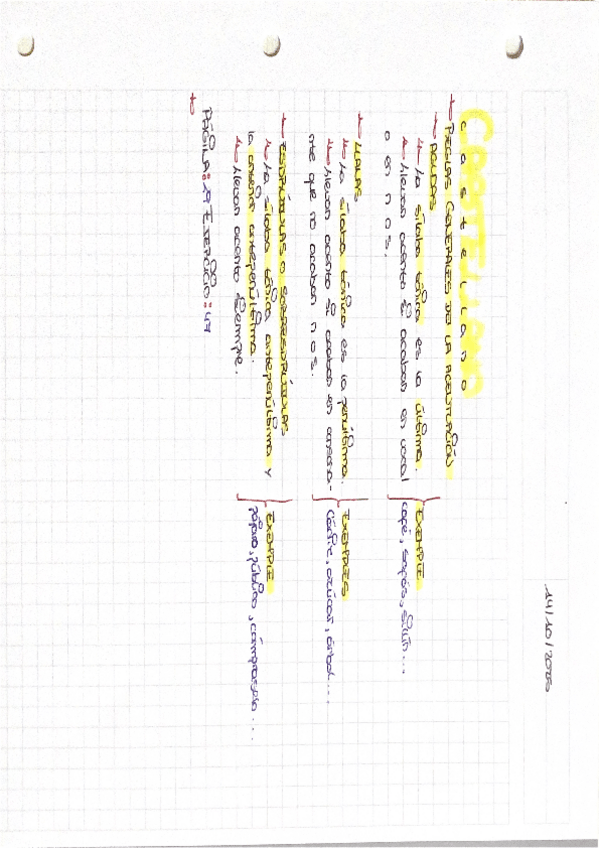 14/10/2025
Castellano
REGLAS GENERALES DE LA ACENTUACIÓN
AGUDAS
La sílaba tónica es la última.
Llevan acento si acaban en vocal
o en n o s.
EXEMPLE
café, sofás,
LLANAS
La sílaba tónica es la penúltima.
Llevan acento si acaban en consona-
nte que no acaban n o s.
EXEMPLES
azúcar, árbol...
ESDRÚJULAS O SOBRESDRÚJULAS
La sílaba tónica antepenúltima y
la anterior antepenúltima.
Llevan acento siempre.
EXEMPLE
público, cómpraselo...
PÁGINA: 19 EJERCICIO: 47